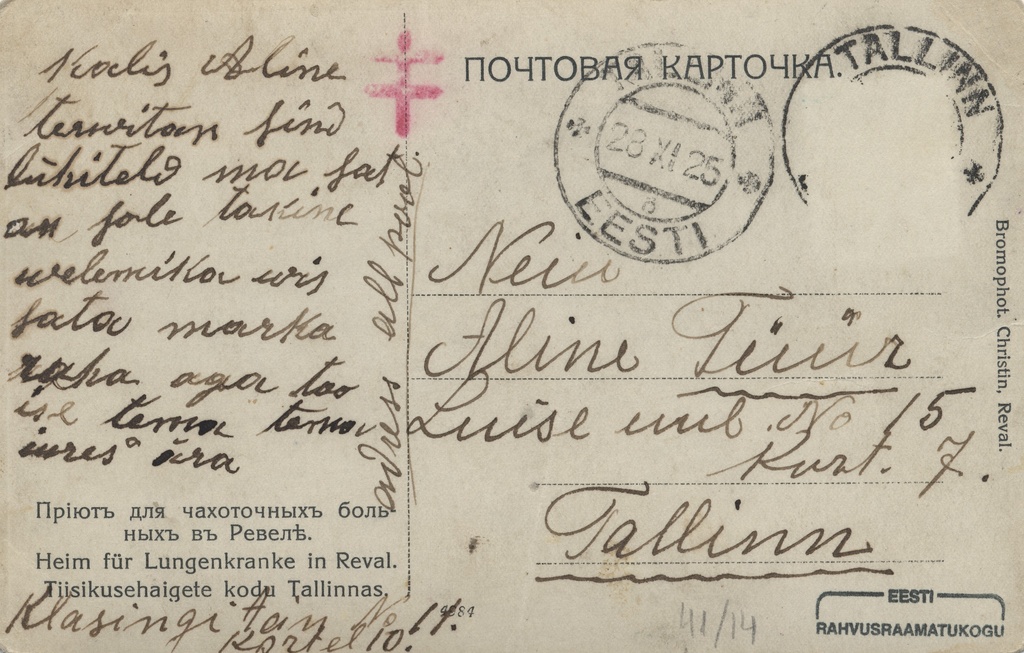 Kalis Aline
terwitan sind
lühiteld ma sat
an sole takine
welemika wis
sata marka
raha aga too
ise tema tema
jures ära
adress all pool.
Пріютъ для чахоточныхъ боль-
ныхъ въ Ревелѣ.
Heim für Lungenkranke in Reval.
Tiisikusehaigete kodu Tallinnas.
Klasingi tän No 11.
Kortel 10.
ПОЧТОВАЯ КАРТОЧКА.
TALLINN
28 XI 25
EESTI
TALLINN
Neiu
Aline Tüür
Luise uul. No 15
Kort. 7.
Tallinn
Bromophot. Christin, Reval.
41/14
EESTI
RAHVUSRAAMATUKOGU